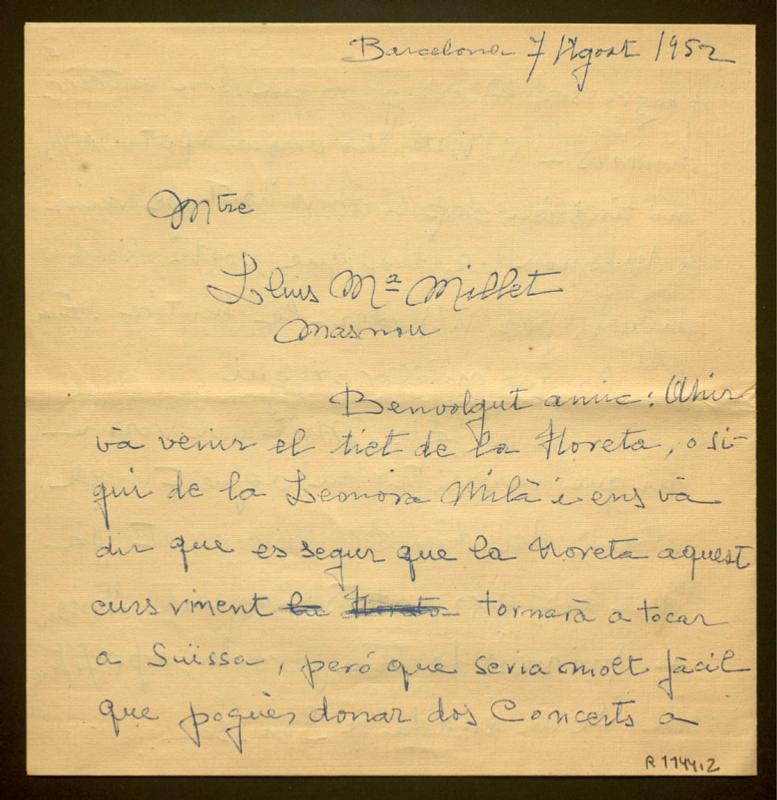 Barcelona 7 Agost 1952
Mtre
Lluis Mª Millet
Masnou
Benvolgut amic: Ahir
và venir el tiet de la Noreta, o si-
gui de la Leonora Milà i ens và
dir que es segur que la Noreta aquest
curs vinent la Noreta tornarà a tocar
a Suïssa, peró que seria molt fàcil
que pogués donar dos Concerts a
R 1144.2